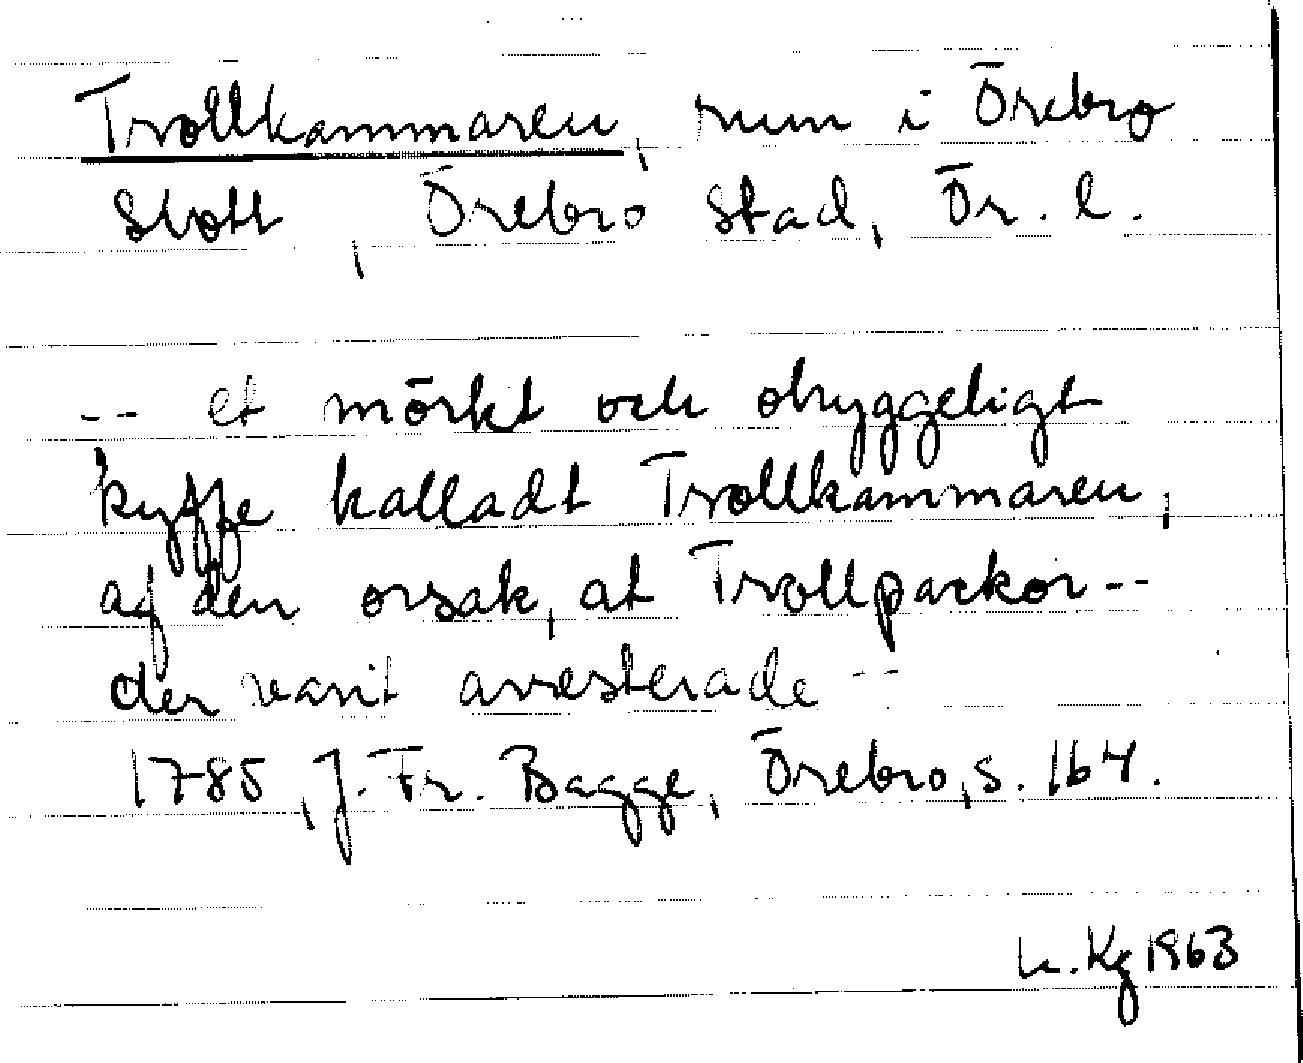 Trollkammaren, rum i Örebro
slott, Örebro stad, Ör. l.
-- et mörkt och ohyggeligt
kyffe kalladt Trollkammaren,
af den orsak, at Trollpackor --
der varit arresterade --
1785, J. Fr. Bagge, Örebro, s. 164.
Kg 1963